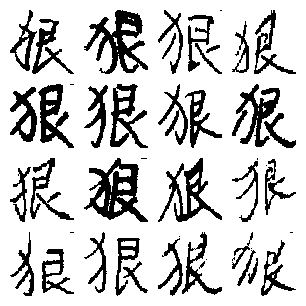 狠狠狠狠
狠狠狠狠
狠狠狠狠
狠狠狠狠